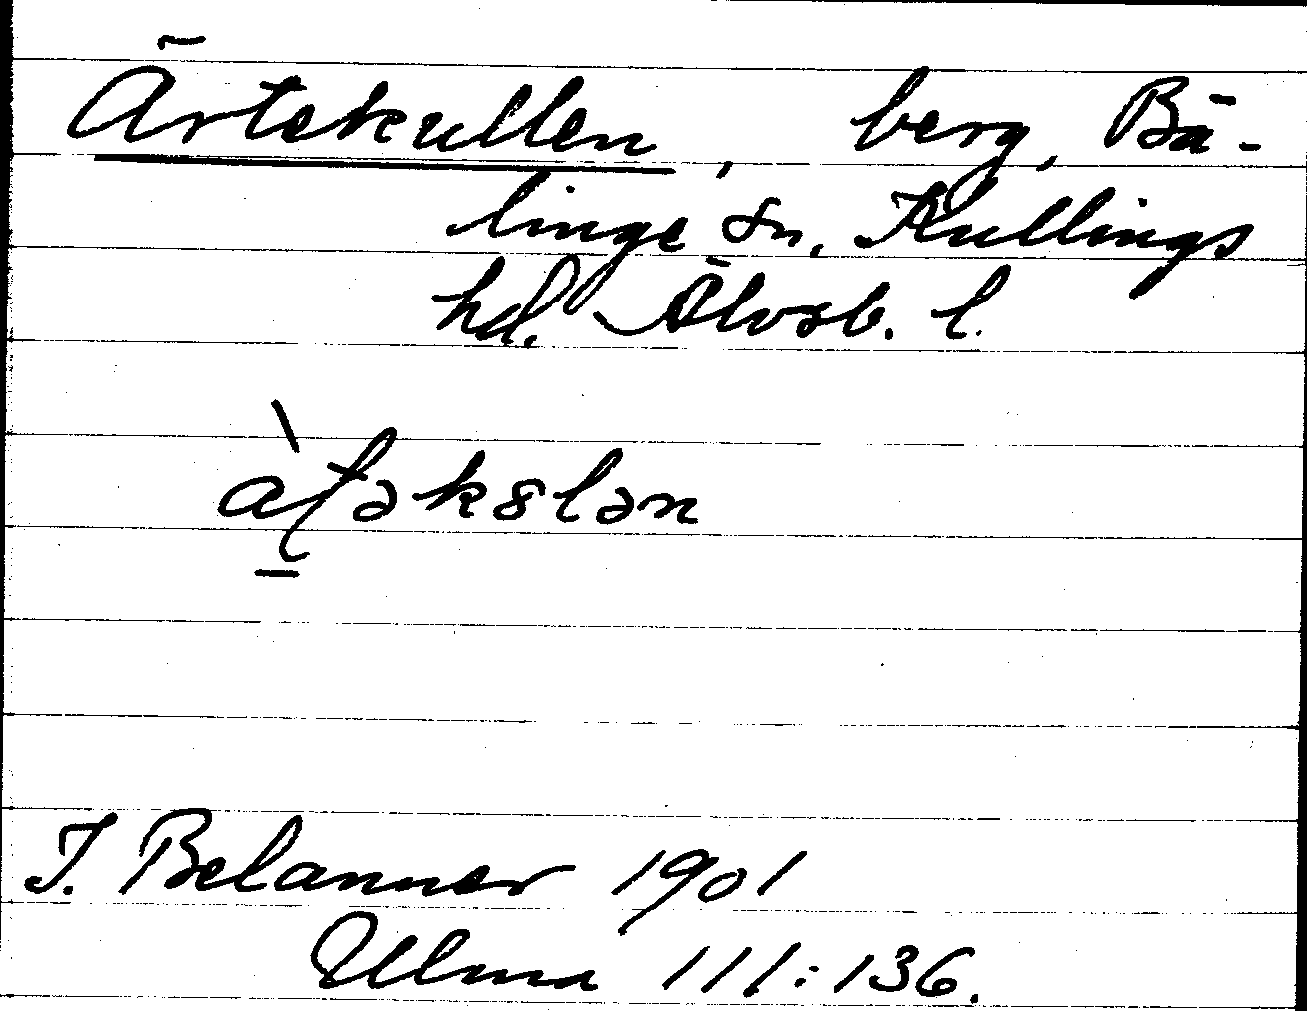 Ärtekullen, berg, Bä-
linge sn, Kullings
hd. Älvsb. l.
J. Belanner 1901
Ulma 111:136.